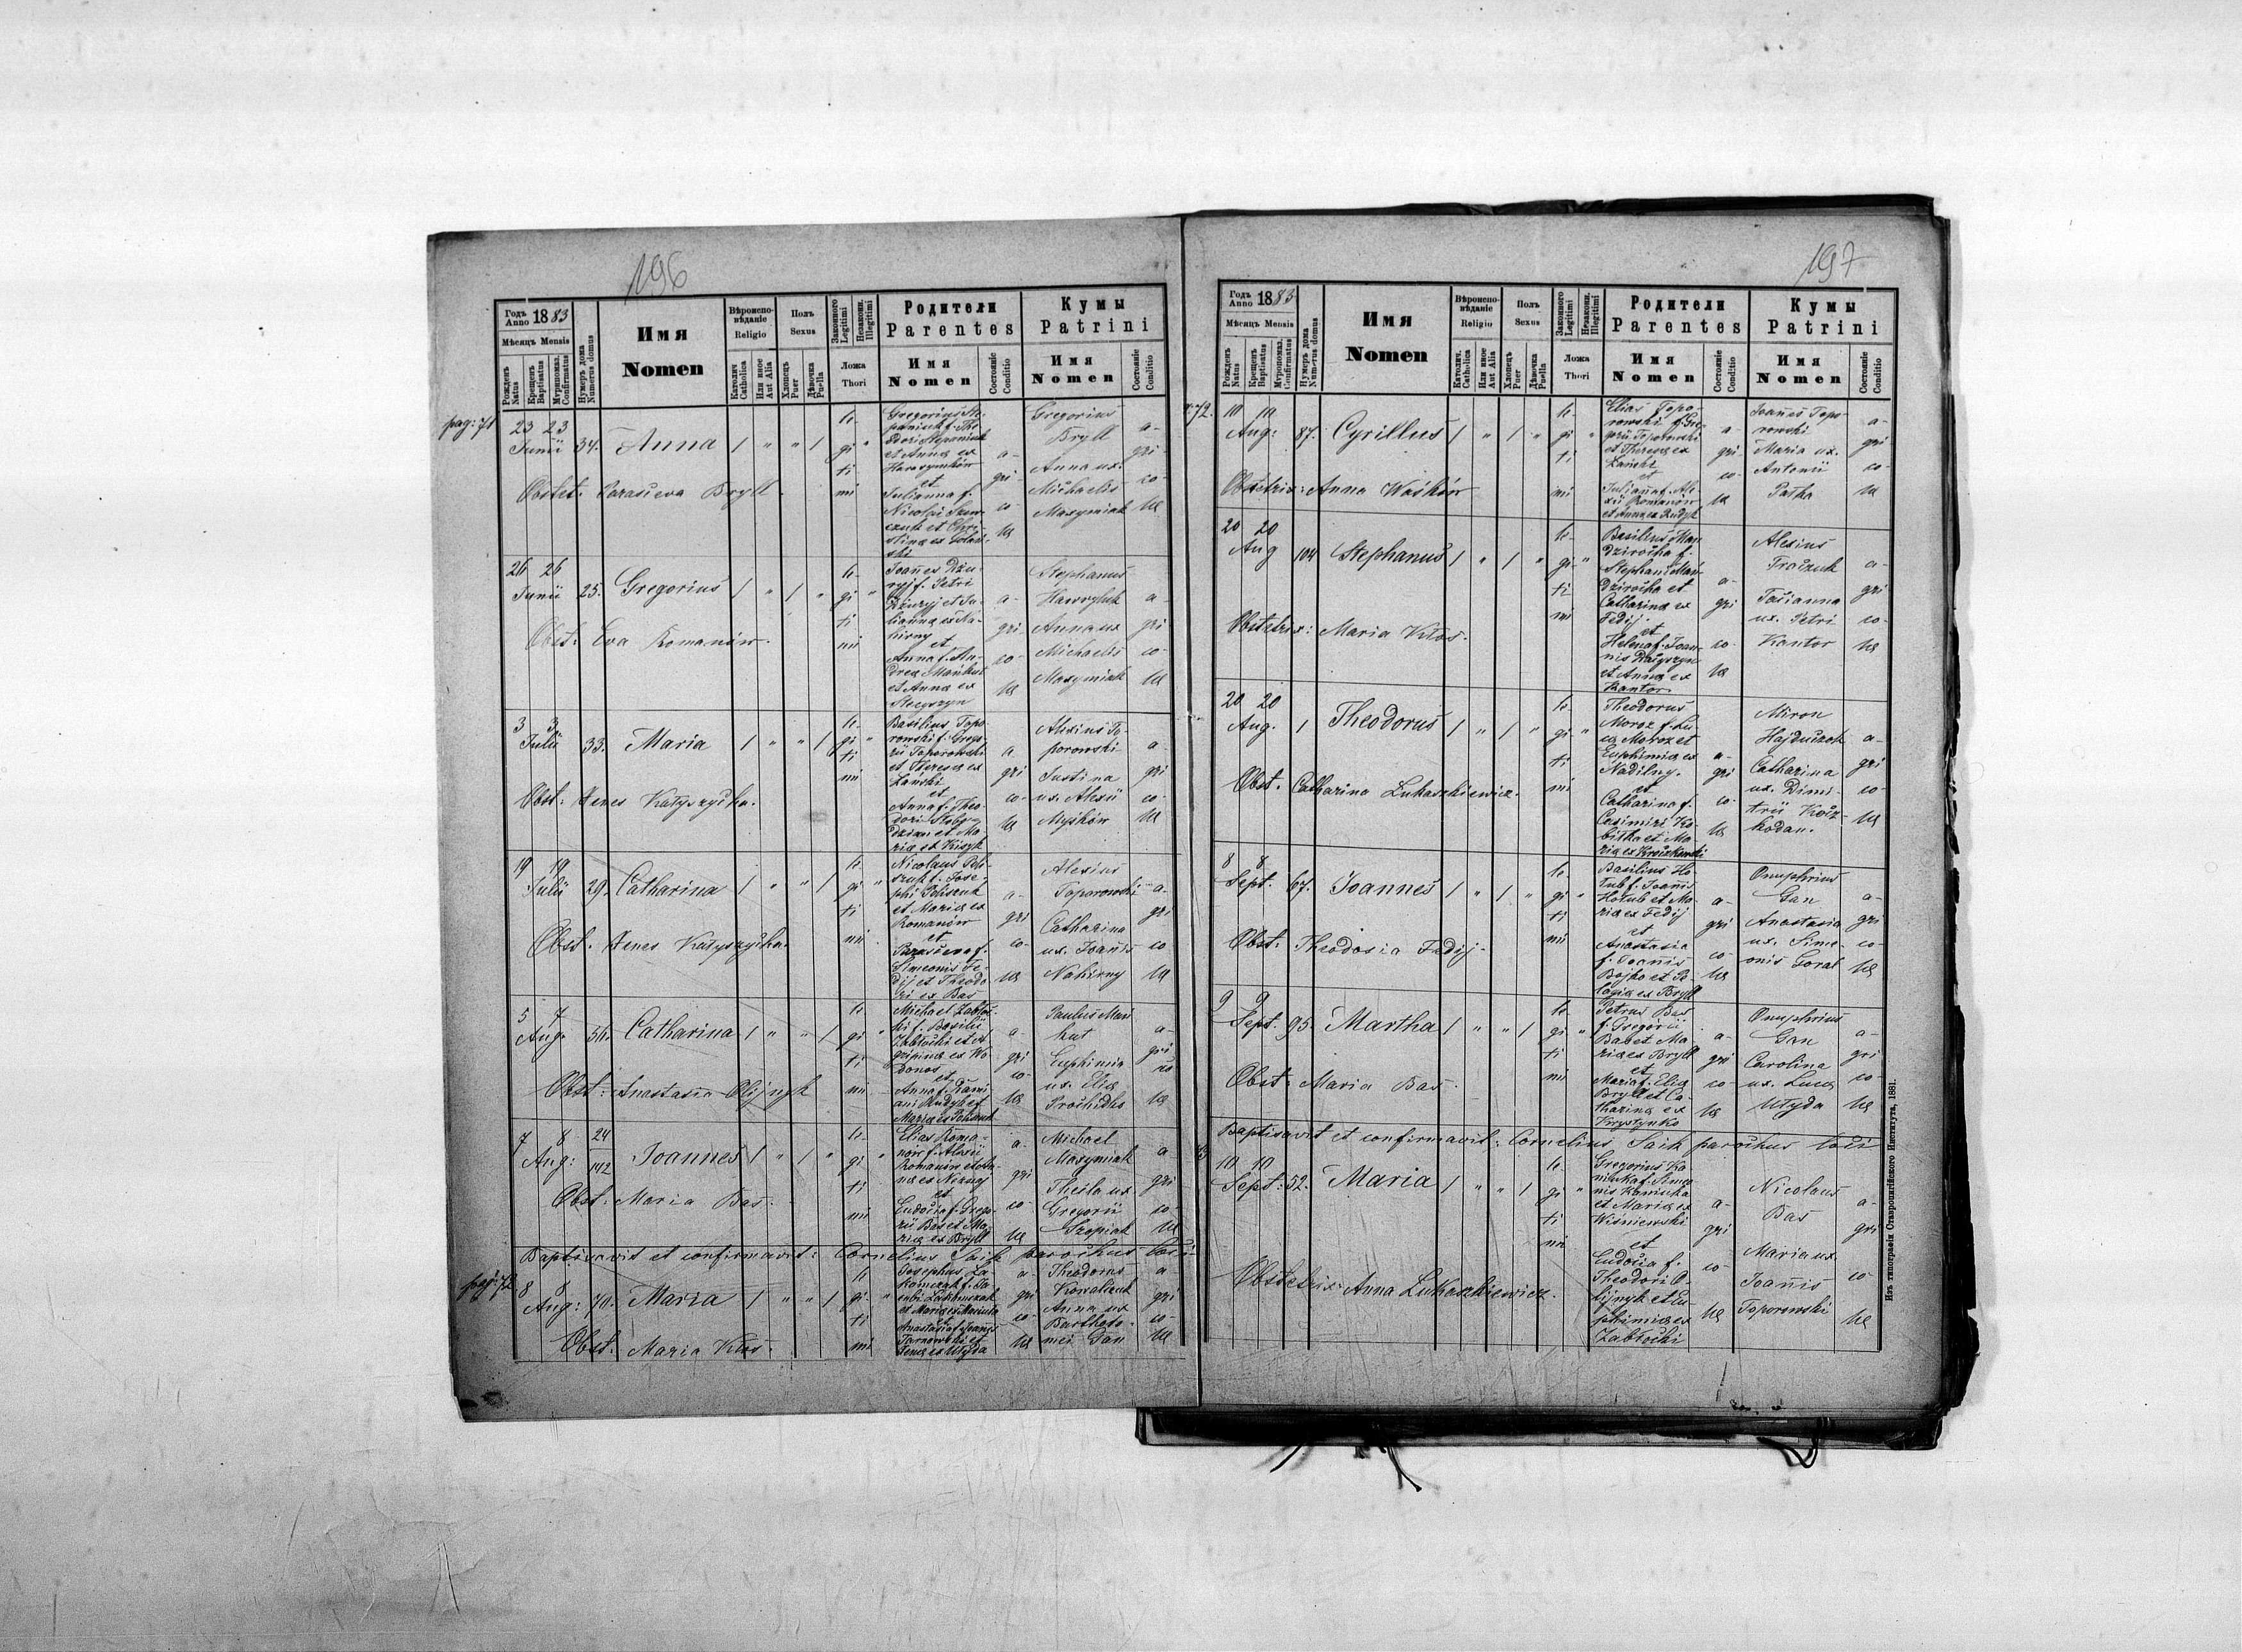 196
Годъ Anno 1883
Мѣсяцъ Mensis
Рожденъ Natus
Крещенъ Baptisatus
Муропомаз. Confirmatus
Нумеръ дома Numerus domus
Имя Nomen
Вѣроисповѣданіе Religio
Католич Catholica
Или иное Aut Alia
Полъ Sexus
Хлопецъ Puer
Дѣвочка Puella
Законного Legitimi
Незаконн. Illegitimi
Ложа Thori
Родители Parentes
Имя Nomen
Состояніе Conditio
Кумы Patrini
Имя Nomen
Состояніе Conditio
pag: 71
23 23 Junii 34. Anna
le- gi ti mi
et Anna ex
et
Julianna f.
Nicolai
a- gri- co- læ
Gregorius
Bryll
Anna ux.
Michaelis
Maxymiak
a- gri- co- læ
Obstet. Parasceva Bryll.
26 26 Junii 25. Gregorius
le- gi ti mi
Joannes Dżu-
ryj f. Petri
Dżuryj et Ju-
lianna ex Na-
hirny
et
Anna f. An-
dreæ
et Anna ex
a- gri co- læ
Stephanus
Hawryluk
Anna ux
Michaelis
Maxymiak
a- gri co- læ
Obst: Eva Romanów.
3 3 Julii 33. Maria
le- gi ti mi
Basilius Topo-
rowski f. Grego-
rii Toporowski
et Theresa ex
Łański
et
Anna f. Theo-
dori
et Ma-
ria ex
a gri co- læ
Alexius To-
porowski
Justina
ux. Alexii
Myśków
a- gri co- læ
Obst: Irenes
19 19 Julii 29. Catharina
le- gi ti mi
Nicolaus Pel-
szuk f. Jose-
phi Pelszuk
et Maria ex
Romanów
et
Parasceva f.
Simeonis Fe-
dij et Theodo-
ri ex Bas
a- gri co- læ
Alexius
Toporowski
Catharina
ux. Joannis
Nahirny
a- gri co læ
5 7 Aug. 56. Catharina
le- gi ti mi
Michael Zabłoc-
ki f. Basilii
Zabłocki et A-
gripina ex Wo-
donos
et
Anna f. Dami-
ani Rudyk et
Maria ex
a- gri co- læ
Paulus
Euphimia
ux. Eliæ
a- gri co læ
Obst: Anastasia Olijnyk
7 8 Aug: 24 142 Joannes
le- gi ti mi
Elias Roma-
nów f. Alexii
Romanów et An-
na ex
et
Eudocia f. Grego-
rii Bas et Ma-
ria ex Bryll
a- gri co læ
Michael
Maxymiak
Thecla ux
Gregorii
Szopiak
a gri co- læ
Obst. Maria Bas.
Baptisavit et confirmavit: Cornelius Saik parochus loci
pag: 72
8 8 Aug: 70. Maria
le gi- ti mi
Josephus
et
Anastasia f. Joannis
Tarnowski et
a- gri co- læ
Theodorus
Kowalczuk
Anna ux
Bartholo-
mei Gan
a gri co- læ
Obst. Maria Kłos.
197
Годъ Anno 1883
Мѣсяцъ Mensis
Рожденъ Natus
Крещенъ Baptisatus
Муропомаз. Confirmatus
Нумеръ дома Numerus domus
Имя Nomen
Вѣроисповѣданіе Religio
Католич. Catholica
Или иное Aut Alia
Полъ Sexus
Хлопецъ Puer
Дѣвочка Puella
Законного Legitimi
Незаконн. Illegitimi
Ложа Thori
Родители Parentes
Имя Nomen
Состояніе Conditio
Кумы Patrini
Имя Nomen
Состояніе Conditio
72.
10 10 Aug: 87. Cyrillus
le- gi ti mi
Elias Topo-
rowski f. Gre-
gorii Toporowski
et Theresa ex
Łański
et
Julianna f. Ale-
xii Romanów
et Anna ex Rudyk
a- gri co- læ
Joannes Topo-
rowski
Maria ux.
Antonii
a- gri co- læ
Obstetrix: Anna Waśków
20 20 Aug 104 Stephanus
le- gi ti mi
Basilius
Stephani
et
Catharina ex
Fedij.
et
Helena f. Joan-
nis
et Anna ex
Kantor
a- gri co- læ
Alexius
Troczuk
Tacianna
ux. Petri
Kantor
a- gri co- læ
Obstetrix: Maria Kłos.
20 20 Aug. 1 Theodorus
le- gi ti mi
Theodorus
Moroz f. Lu-
cæ Moroz et
Euphimia ex
Nadilny.
et
Catharina f.
Casimiri
et Ma-
ria ex
a- gri co- læ
Miron
Hajduczok
Catharina
ux. Dimi-
trii
a- gri co- læ
Obst. Catharina Lukaszkiewicz.
8 8 Sept. 67. Joannes
le- gi ti mi
Basilius Ho-
łub f. Joannis
Hołub et Ma-
ria ex Fedij
et
Anastasia
f. Joannis
Bojko et Pe-
lagia ex Bryll
a- gri co- læ
Onuphrius
Gan
Anastasia
ux. Sime-
onis Goral
a- gri co- læ
Obst: Theodosia Fedij.
9 9 Sept. 95. Martha
le- gi ti mi
Petrus Bas
f. Gregorii
Bas et Ma-
ria ex Bryll
et
Maria f. Eliæ
Bryll et Ca-
tharina ex
Krystynko
a- gri co- læ
Onuphrius
Gan
Carolina
ux. Lucæ
Utyda
a- gri co- læ
Obst: Maria Bas.
Baptisavit et confirmavit: Cornelius Saik parochus loci
10 10 Sept: 52. Maria
le- gi ti mi
Gregorius Ka-
niuka f. Simeo-
nis Kaniuka
et Maria ex
Wiśniewski
et
Eudocia f.
Theodori O-
lijnyk et Eu-
phimia ex
Zabłocki
a- gri co- læ
Nicolaus
Bas
Maria ux.
Joannis
Toporowski
a- gri co- læ
Obstetrix: Anna Lukaszkiewicz.
Изъ типографіи Ставропигійского Института, 1881.